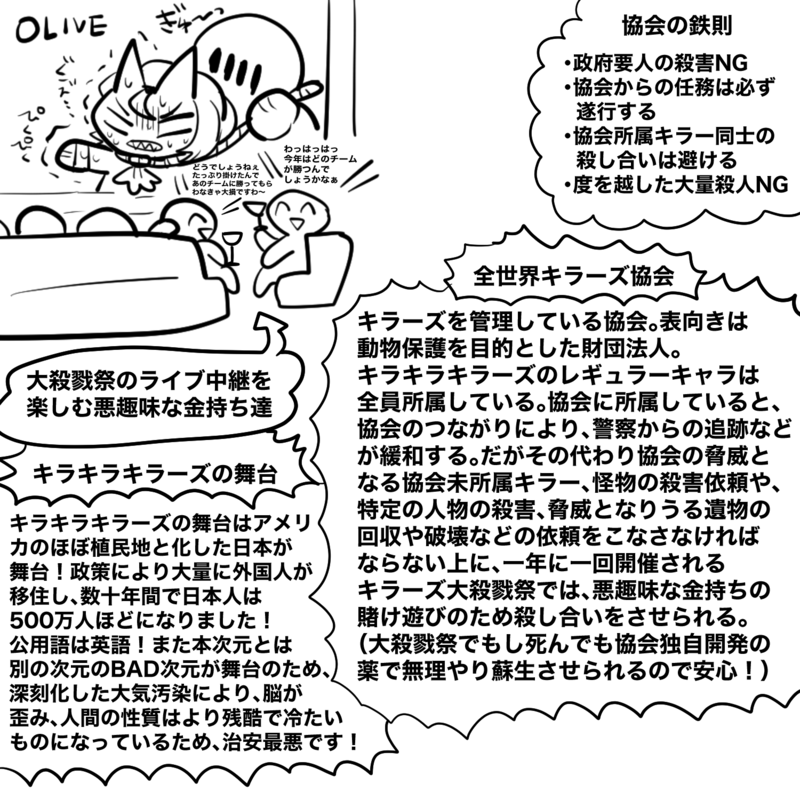 OLIVE
ぎゅ〜っ
ぴくぴく
どうでしょうねぇ
たっぷり掛けたんで
あのチームに勝ってもら
わなきゃ大損ですわ〜
わっはっはっ
今年はどのチーム
が勝つんで
しょうかなぁ
協会の鉄則
・政府要人の殺害NG
・協会からの任務は必ず
遂行する
・協会所属キラー同士の
殺し合いは避ける
・度を越した大量殺人NG
全世界キラーズ協会
キラーズを管理している協会。表向きは
動物保護を目的とした財団法人。
キラキラキラーズのレギュラーキャラは
全員所属している。協会に所属していると、
協会のつながりにより、警察からの追跡など
が緩和する。だがその代わり協会の脅威と
なる協会未所属キラー、怪物の殺害依頼や、
特定の人物の殺害、脅威となりうる遺物の
回収や破壊などの依頼をこなさなければ
ならない上に、一年に一回開催される
キラーズ大殺戮祭では、悪趣味な金持ちの
賭け遊びのため殺し合いをさせられる。
（大殺戮祭でもし死んでも協会独自開発の
薬で無理やり蘇生させられるので安心！）
大殺戮祭のライブ中継を
楽しむ悪趣味な金持ち達
キラキラキラーズの舞台
キラキラキラーズの舞台はアメリ
カのほぼ植民地と化した日本が
舞台！政策により大量に外国人が
移住し、数十年間で日本人は
500万人ほどになりました！
公用語は英語！また本次元とは
別の次元のBAD次元が舞台のため、
深刻化した大気汚染により、脳が
歪み、人間の性質はより残酷で冷たい
ものになっているため、治安最悪です！